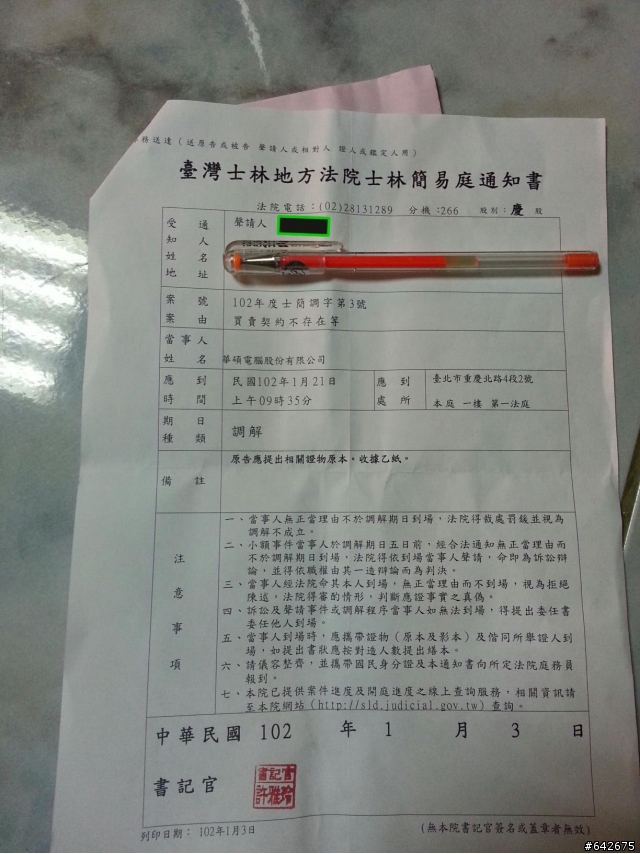 務送達（送原告或被告 聲請人或相對人 證人或鑑定人用）
臺灣士林地方法院士林簡易庭通知書
法院電話：(02)28131289 分機：266 股別：慶 股
受通知人姓名地址
聲請人
案號 102年度士簡調字第3號
案由 買賣契約不存在等
當事人姓名 華碩電腦股份有限公司
應到時間 民國102年1月21日
上午09時35分
應到處所 臺北市重慶北路4段2號
本庭 一樓 第一法庭
期日種類 調解
備註 原告應提出相關證物原本。收據乙紙。
注意事項
一、當事人無正當理由不於調解期日到場，法院得裁處罰鍰並視為
調解不成立。
二、小額事件當事人於調解期日五日前，經合法通知無正當理由而
不於調解期日到場，法院得依到場當事人聲請，命即為訴訟辯
論，並得依職權由其一造辯論而為判決。
三、當事人經法院命其本人到場，無正當理由而不到場，視為拒絕
陳述，法院得審酌情形，判斷應證事實之真偽。
四、訴訟及聲請事件或調解程序當事人如無法到場，得提出委任書
委任他人到場。
五、當事人到場時，應攜帶證物（原本及影本）及偕同所舉證人到
場，如提出書狀應按對造人數提出繕本。
六、請儀容整齊，並攜帶國民身分證及本通知書向所定法院庭務員
報到。
七、本院已提供案件進度及開庭進度之線上查詢服務，相關資訊請
至本院網站（http://sld.judicial.gov.tw）查詢。
中華民國 102 年 1 月 3 日
書記官
書記官
許雅玲
列印日期： 102年1月3日
（無本院書記官簽名或蓋章者無效）
#642675